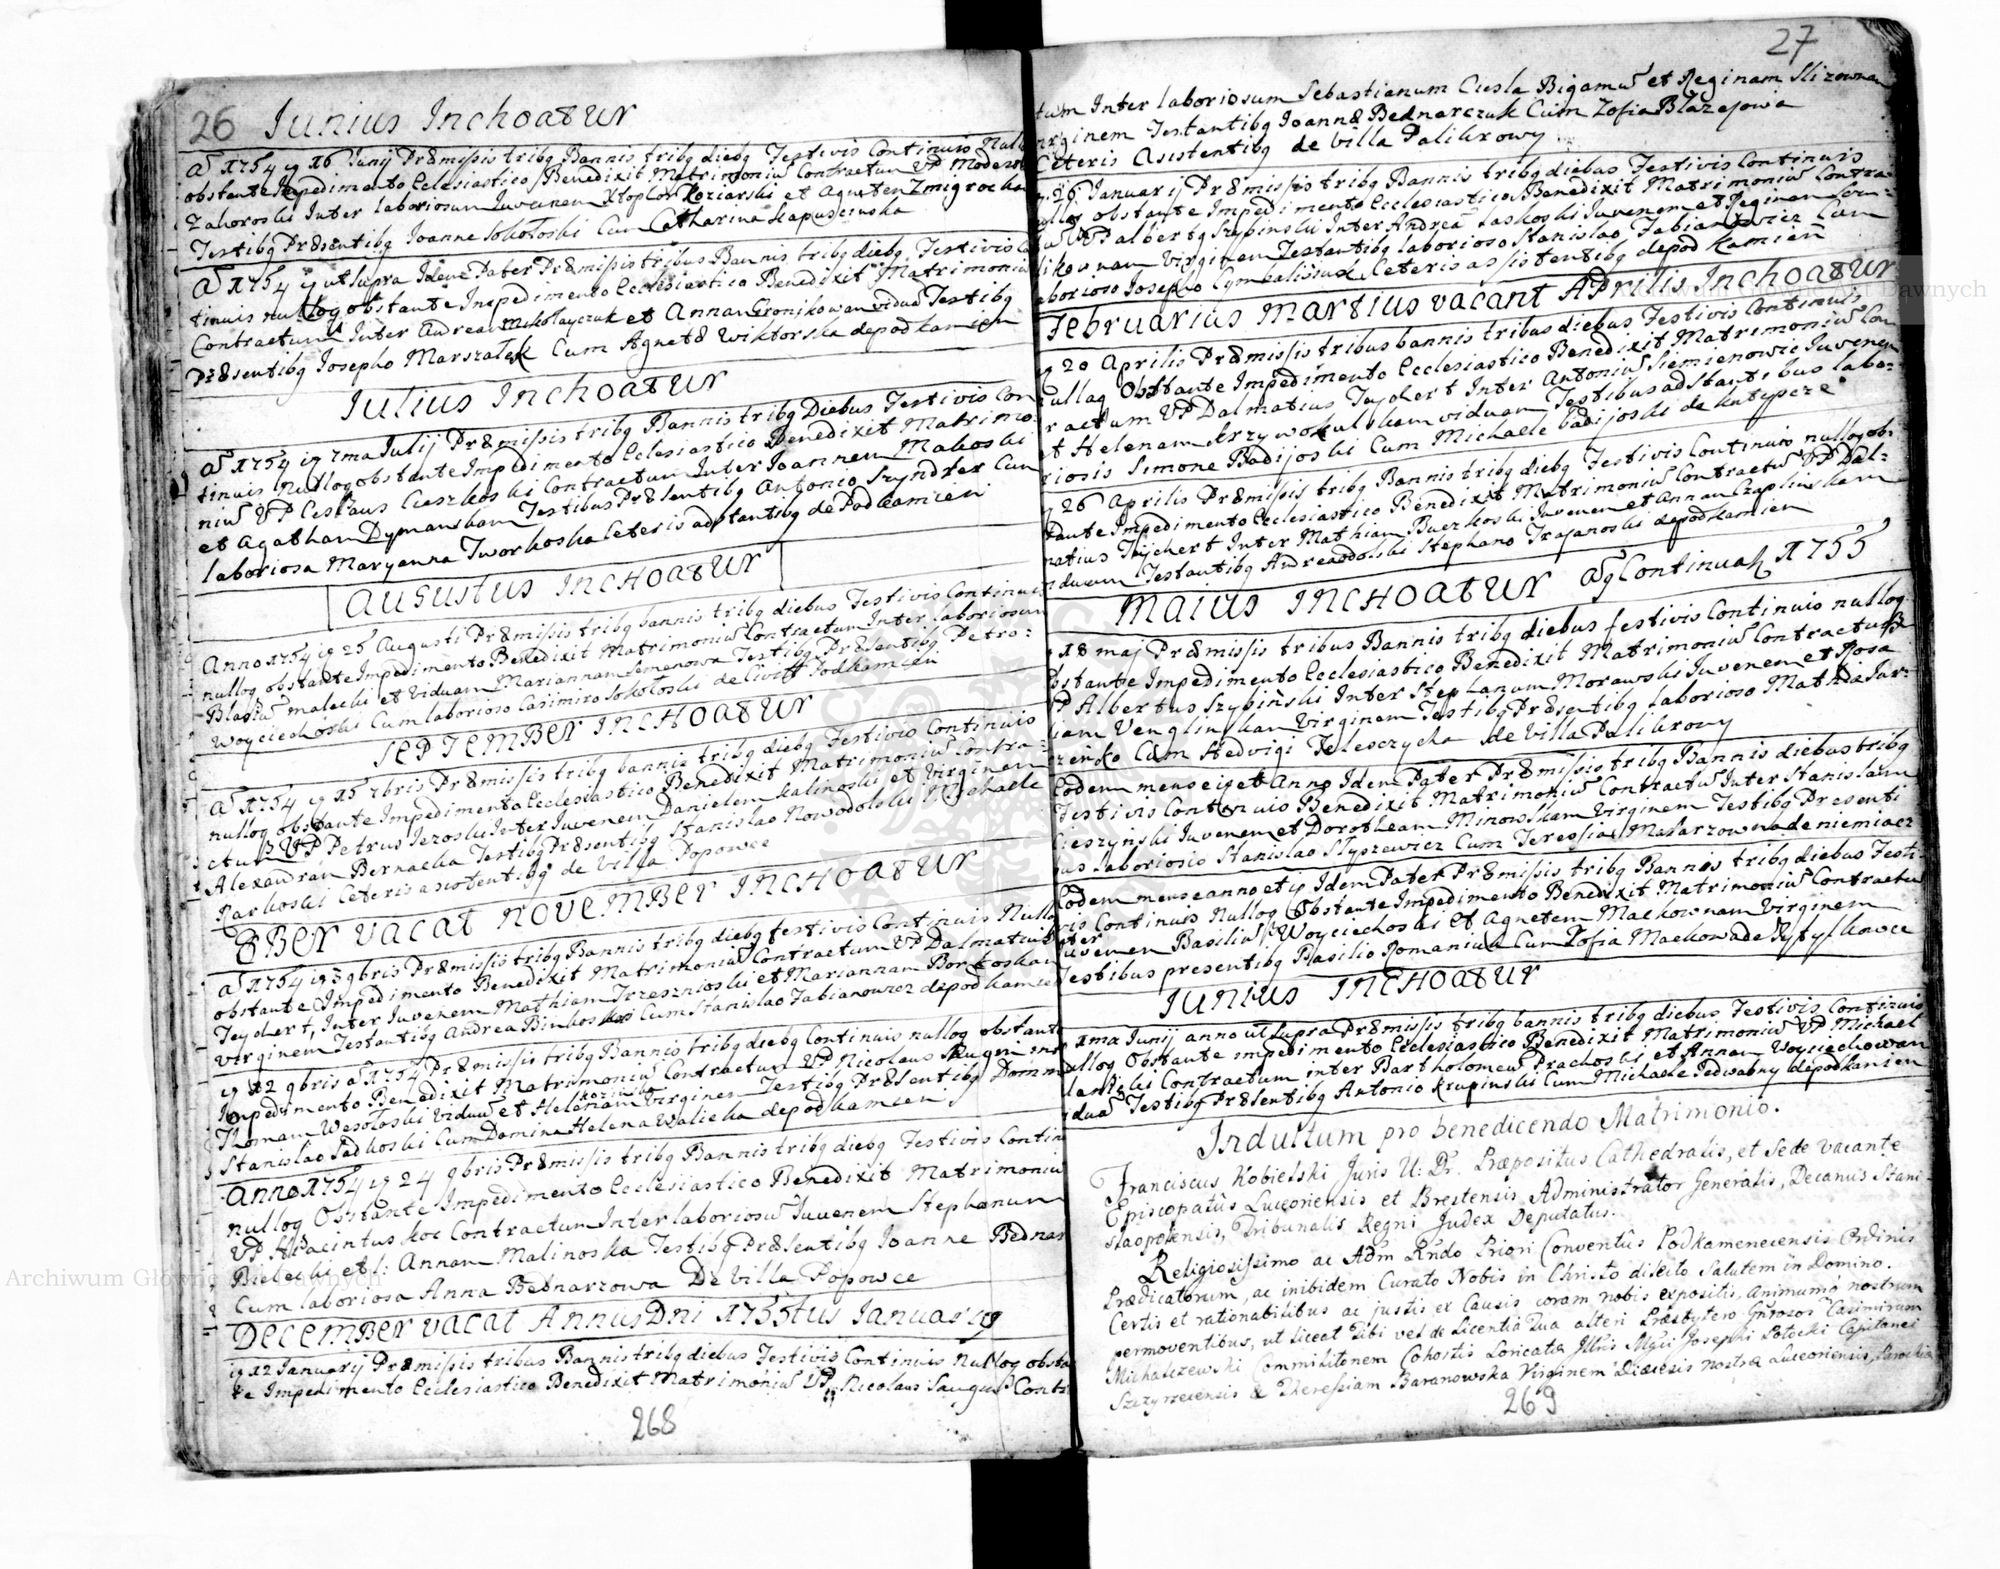 26 Iunius Inchoatur
Aō 1754 ig 16 Junij Præmissis tribg Bannis tribg diebg Festivis Continuis Nullo
obstante Impedimento Eclesiastico Benedixit Matrimoniū Contractum VP Modera
Zahoroski Inter laboriosum Iuvenem Xtophor Koziarski et Agneten Zmigrocka
Testibg Præsentibg Joanne Sokołoski Cum Catharina Kapuscinska
Aō 1754 ig ut supra Idem Pater Præmissis tribus Bannis tribg diebg Festivis
tinuis nullog obstante Impedimento Ecclesiastico Benedixit Matrimoniu
Contractum Inter Andream Mikołayczuk et Annam Gronikowan viduā Testibg
Præsentibg Josepho Marszałek Cum Agnetæ Wiktorska depodkamien
Iulius Inchoatur
Aō 1754 ig 7ma Julij Præmissis tribg Bannis tribg Diebus Festivis Con
tinuis Nullog obstante Impedimento Eclesiastico Benedixit Matrimo
niū VP Ceslaus Cieszkoski Contractum Inter Joannem Makoski
et Agatham Dymanskam Testibus Præsentibg Antonio Szyndler Cum
laboriosa Maryanna Tworkoska Ceteris adstantibg de Podkamien
Augustus Inchoatur
Anno 1754 ig 25 Augusti Præmissis tribg bannis tribg diebus Festivis Continui
nullog obstante Impedimento Benedixit Matrimoniū Contractum Inter laboriosum
Blasiū malecki et Viduam Mariannam Semenowa Testibg Præsentibg Petro-
Woyciechoski Cum laborioso Casimiro Sokołoski de Civitt Podkamien
September Inchoatur
Aō 1754 ig 15 7bris Præmissis tribg bannis tribg diebg Festivis Continuis
nullog obstante Impedimento Ecclesiastico Benedixit Matrimoniū Contra-
ctum VP Petrus Jezoski Inter Iuvenem Danielem Kalinoski et Virginem
Alexandram Bernacka Testibg Præsentibg Stanislao Nowodolski Michaele
Rarkoski Ceteris assistentibg de Villa Popowce
8Ber Vacat November Inchoatur
Aō 1754 ig 3 9bris Præmissis tribg Bannis tribg diebg festivis Continuis Nullog
obstante Impedimento Benedixit Matrimoniū Contractum VP Dalmatius
Teychert, Inter Iuvenem Mathiam Trzesznioski et Mariannam Borkoskam
Virginem Testantibg Andrea Binkoski Cum Stanislao Fabianowicz depodkamien
ig 12 9bris aō 1754 Præmissis tribg Bannis tribg diebg Continuis nullog obstante
Impedimento Benedixit Matrimoniū Contractum VP Nicolaus
Thomam Wesołoski Viduū et Helenam Virginem Testibg Præsentibg Domin
Stanislao Sadkoski Cum Domina Helena Walicka depodkamien
Anno 1754 ig 24 9bris Præmissis tribg Bannis tribg diebg Festivis Contin
nullog Obstante Impedimento Ecclesiastico Benedixit Matrimoniū
VP Hyacintus Koc Contractum Inter laboriosū Iuvenem Stephanum
Bielecki et l: Annam Malinoska Testibg Præsentibg Joanne Bednar
Cum laboriosa Anna Bednarzowa De Villa Popowce
December vacat Annus Dni 1755tus Ianuarig
ig 12 Januarij Præmissis tribus Bannis tribg diebus Festivis Continuis Nullog obsta
te Impedimento Ecclesiastico Benedixit Matrimoniū VP Nicolaus Contr
268
27
tum Inter laboriosum Sebastianum Ciesla Bigamū et Reginam Slizownam
Virginem Testantibg Joannæ Bednarczuk Cum Zofia Błazejowia
Ceteris Asistentibg de villa Palikrowy
26 Januarij Præmissis tribg Bannis tribg diebus Festivis Continuis
nullog obstante Impedimento Ecclesiastico Benedixit Matrimoniū Contra-
VP albertg Szybinski Inter Andreā Laskoski Iuvenem et Reginam
Virginem Testantibg laborioso Stanislao Fabianowicz Cum
laborioso Josepho Cymbalissul Ceteris assistentibg depodkamien
Februarius Martius vacant Aprilis Inchoatur
20 Aprilis Præmissis tribus bannis tribus diebus Festivis Continuis
nullog Obstante Impedimento Ecclesiastico Benedixit Matrimoniū Con
tractum VP Dalmatius Teychert Inter Antoniū Siemienowic Iuvenem
et Helenam Krzywokulskam viduam Testibus adstantibus labo-
riosis Simone Badijoski Cum Michaele badijoski de Kutyszcze
26 Aprilis Præmissis tribg Bannis tribg diebg Festivis Continuis nullog ob-
stante Impedimento Ecclesiastico Benedixit Matrimoniū Contractū VP Dal-
matius Teychert Inter Mathiam Buczkoski Iuvenem et Annam Czaplinskam
viduam Testantibg Andrea Stephano Trojanoski depodkamien
Maius Inchoatur Aōg Continuat 1755
18 maj Præmissis tribus Bannis tribg diebus festivis Continuis nullog
obstante Impedimento Ecclesiastico Benedixit Matrimoniū Contractum
VP Albertus Szybiński Inter Stephanum Morawski Iuvenem et Rosa
liam Venglinskam Virginem Testibg Præsentibg laborioso Mathia Jur-
Cum Hedvigi Telesczycha de Villa Palikrowy
Eodem mense ig et Anno Idem Pater Præmissis tribg Bannis diebus tribg
Festivis Continuis Benedixit Matrimoniū Contractū Inter Stanislaum
Cieszynski Iuvenem et Dorotheam Minowskam Virginem Testibg Presenti
bus laborioso Stanislao Słyszewicz Cum Teressia Malarzowna de niemiacz
Eodem mense anno et ig Idem Pater Præmissis tribg Bannis tribg diebus Festi-
vis Continuis Nullog Obstante Impedimento Benedixit Matrimoniū Contractū
Inter Iuvenem Basiliū Woyciechoski et Agnetem Mackownam Virginem
Testibus presentibg Basilio Romaniuk Cum Zofia Mackowa de
Iunius Inchoatur
1ma Junij anno ut supra Præmissis tribg bannis tribg diebus Festivis Continuis
nullog Obstante impedimento Ecclesiastico Benedixit Matrimoniū VP Michael
Contractum inter Bartholomeū Prachoski et Annam Woyciechowan
viduā Testibg Præsentibg Antonio Krupinski Cum Michaele Jedwabny depodkamien
Indultum pro benedicendo Matrimonio.
Franciscus Kobielski Juris U: Dr. Præpositus Cathedralis, et Sede Vacante
Episcopatûs Luceoriensis et Brestensis Administrator Generalis, Decanus Stani-
slaopolensis, Tribunalis Regni Judex Deputatus.
Religiosissimo ac Adm Rndo Priori Conventûs Podkamenecensis Ordinis
Prædicatorum, ac inibidem Curato Nobis in Christo dilecto Salutem in Domino.
Certis et rationabilibus ac justis ex Causis coram nobis expositis, animumq nostrum
permoventibus, ut liceat Tibi vel de licentia Tua alteri Præsbytero Gnrosos Casimirum
Michalczewski Commilitonem Cohortis Loricatæ Illris Mgci Josephi Potocki Capitanei
Szczyrzecensis & Theressiam Baranowska Virginem Diæcesis nostræ Luceoriensis, Parochiæ
269
Archiwum Główne Akt Dawnych
Archiwum Główne Akt Dawnych